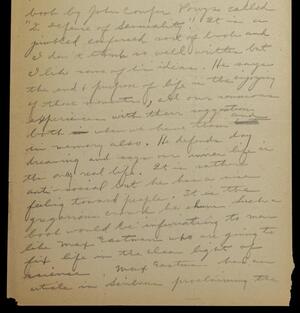 book by John Cowper Powys called
"In Defense of Sensuality." It is a
jumbled confused sort of book and
I don't think so well written but
I like some of its ideas. He says
the end & purpose of life is the enjoying
of those moments, all our sensuous
experiences with their suggestion
both when we have them and
in memory also. He defends day
dreaming and says our inner life is
the only real life. It is rather
anti-social but he has a nice
feeling toward people. It is the
gregarious crowd he Such a
book would be infuriating to man
like Max Eastman who are going to
fix life in the clear light of
science. Max Eastman has an
article in Scribners proclaiming the